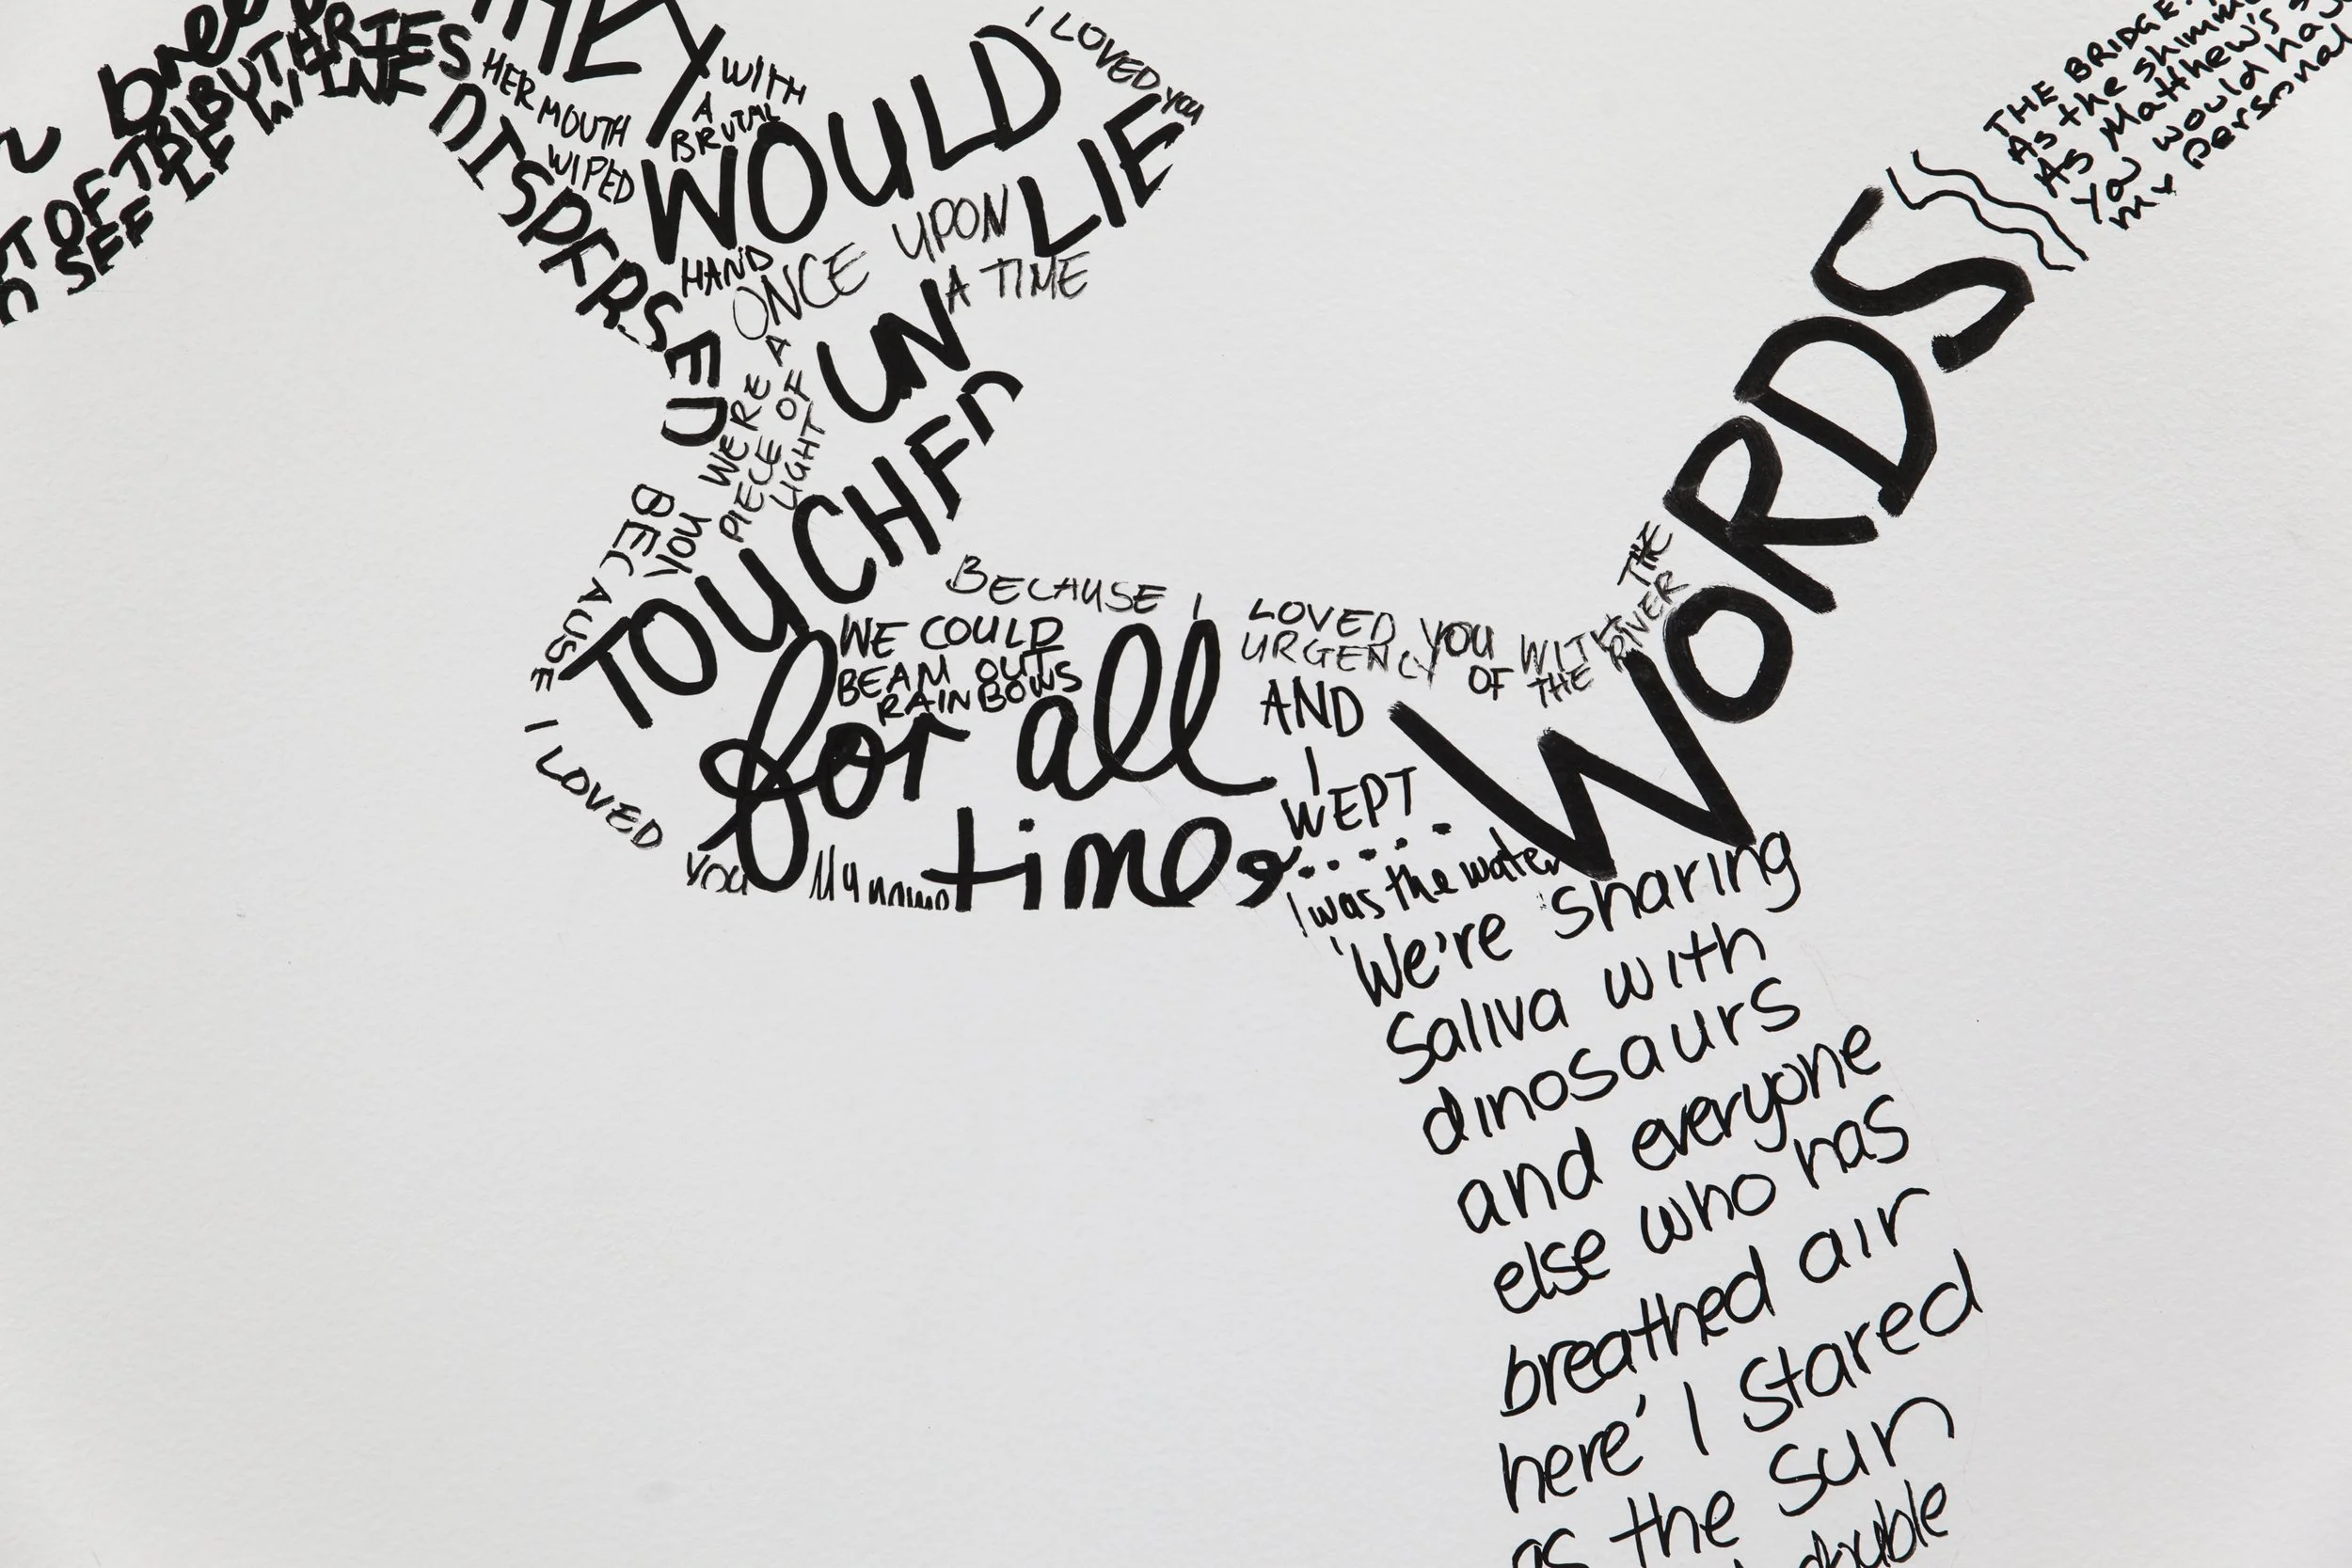 OF TRIBUTARIES
SEE
DISPERSED
HER
MOUTH
WIPED
THEY
WITH
A
BRUTAL
HAND
WOULD
LIE
I LOVED you
ONCE UPON
A TIME
UN
TOUCHED
YOU WERE A
PIECE OF
LIGHT
BECAUSE I LOVED
you
BECAUSE I LOVED YOU WITH THE
URGENCY OF THE RIVER
WE COULD
BEAM OUT
RAINBOWS
for all
time
My name
AND
I
WEPT
.....
I was the water
WORDS
THE BRIDGE.
As the
As Matthew's
You would
my personal
'We're sharing
Saliva with
dinosaurs
and everyone
else who has
breathed air
here' I stared
as the sun
double